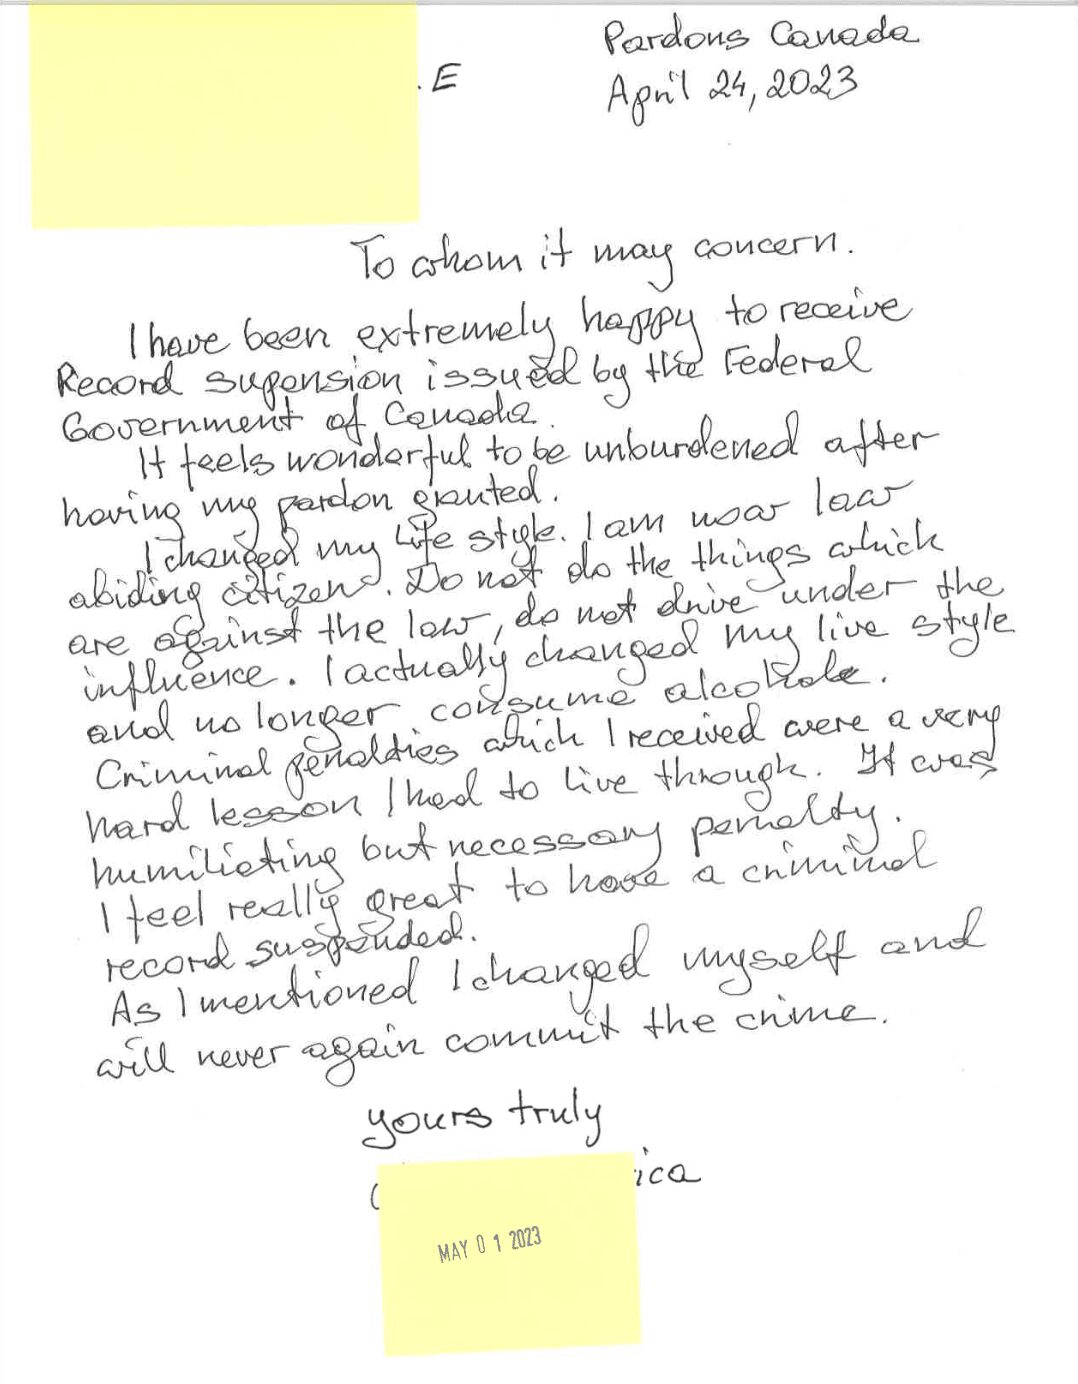 Pardons Canada
. E
April 24, 2023
To whom it may concern.
I have been extremely happy to receive
Record supension issued by the Federal
Government of Canada.
It feels wonderful to be unburdened after
having my pardon granted.
I changed my life style. I am now law
abiding citizen. Do not do the things which
are against the law, do not drive under the
influence. I actually changed my live style
and no longer consume alcohole.
Criminal penalties which I received were a very
hard lesson I had to live through. It was
humiliating but necessary penalty.
I feel really great to have a criminal
record suspended.
As I mentioned I changed myself and
will never again commit the crime.
yours truly
ica
MAY 01 2023